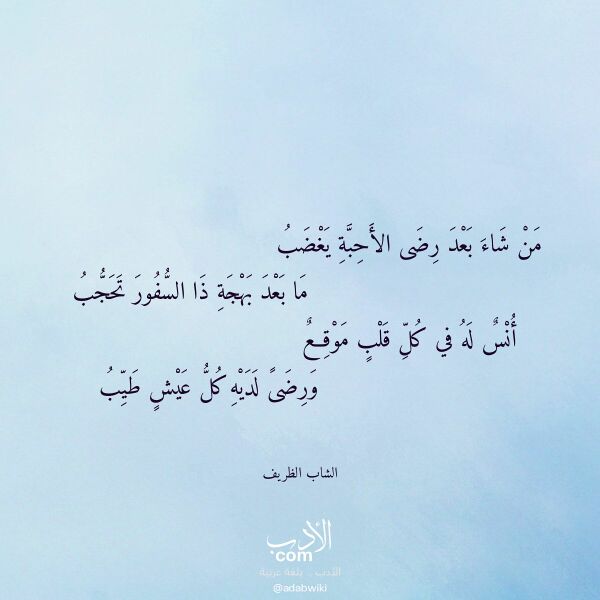 مَنْ شَاءَ بَعْدَ رِضَى الأَحِبَّةِ يَغْضَبُ
مَا بَعْدَ بَهْجَةِ ذَا السُّفُورَ تَحَجُّبُ
أُنْسٌ لَهُ في كُلِّ قَلْبٍ مَوْقِعٌ
وَرِضَىً لَدَيْهِ كُلُّ عَيْشٍ طَيِّبُ
الشاب الظريف
الأدب
com
الأدب .. بلغة عربية
@adabwiki